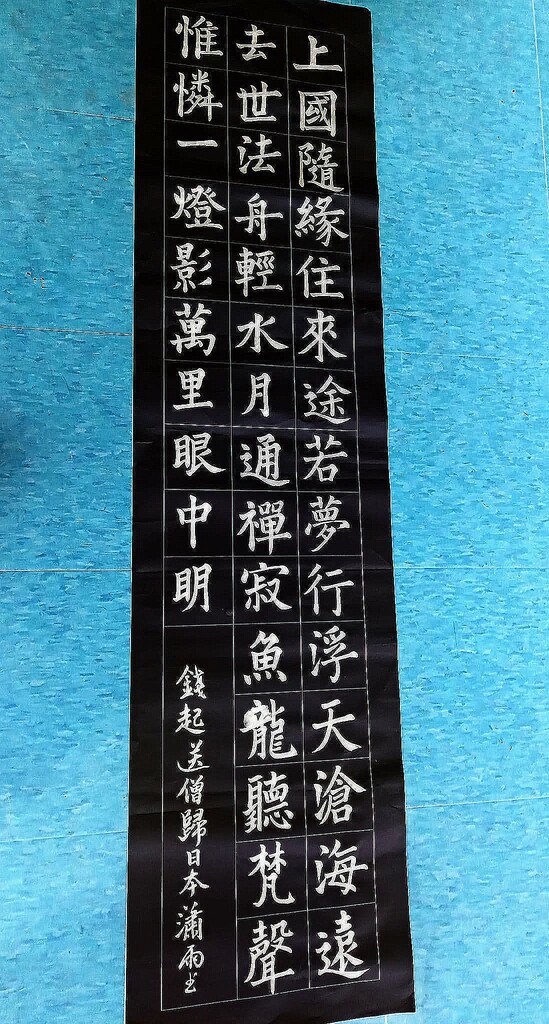 上國隨緣住來途若夢行浮天滄海遠
去世法舟輕水月通禪寂魚龍聽梵聲
惟憐一燈影萬里眼中明
錢起送僧歸日本瀟雨书